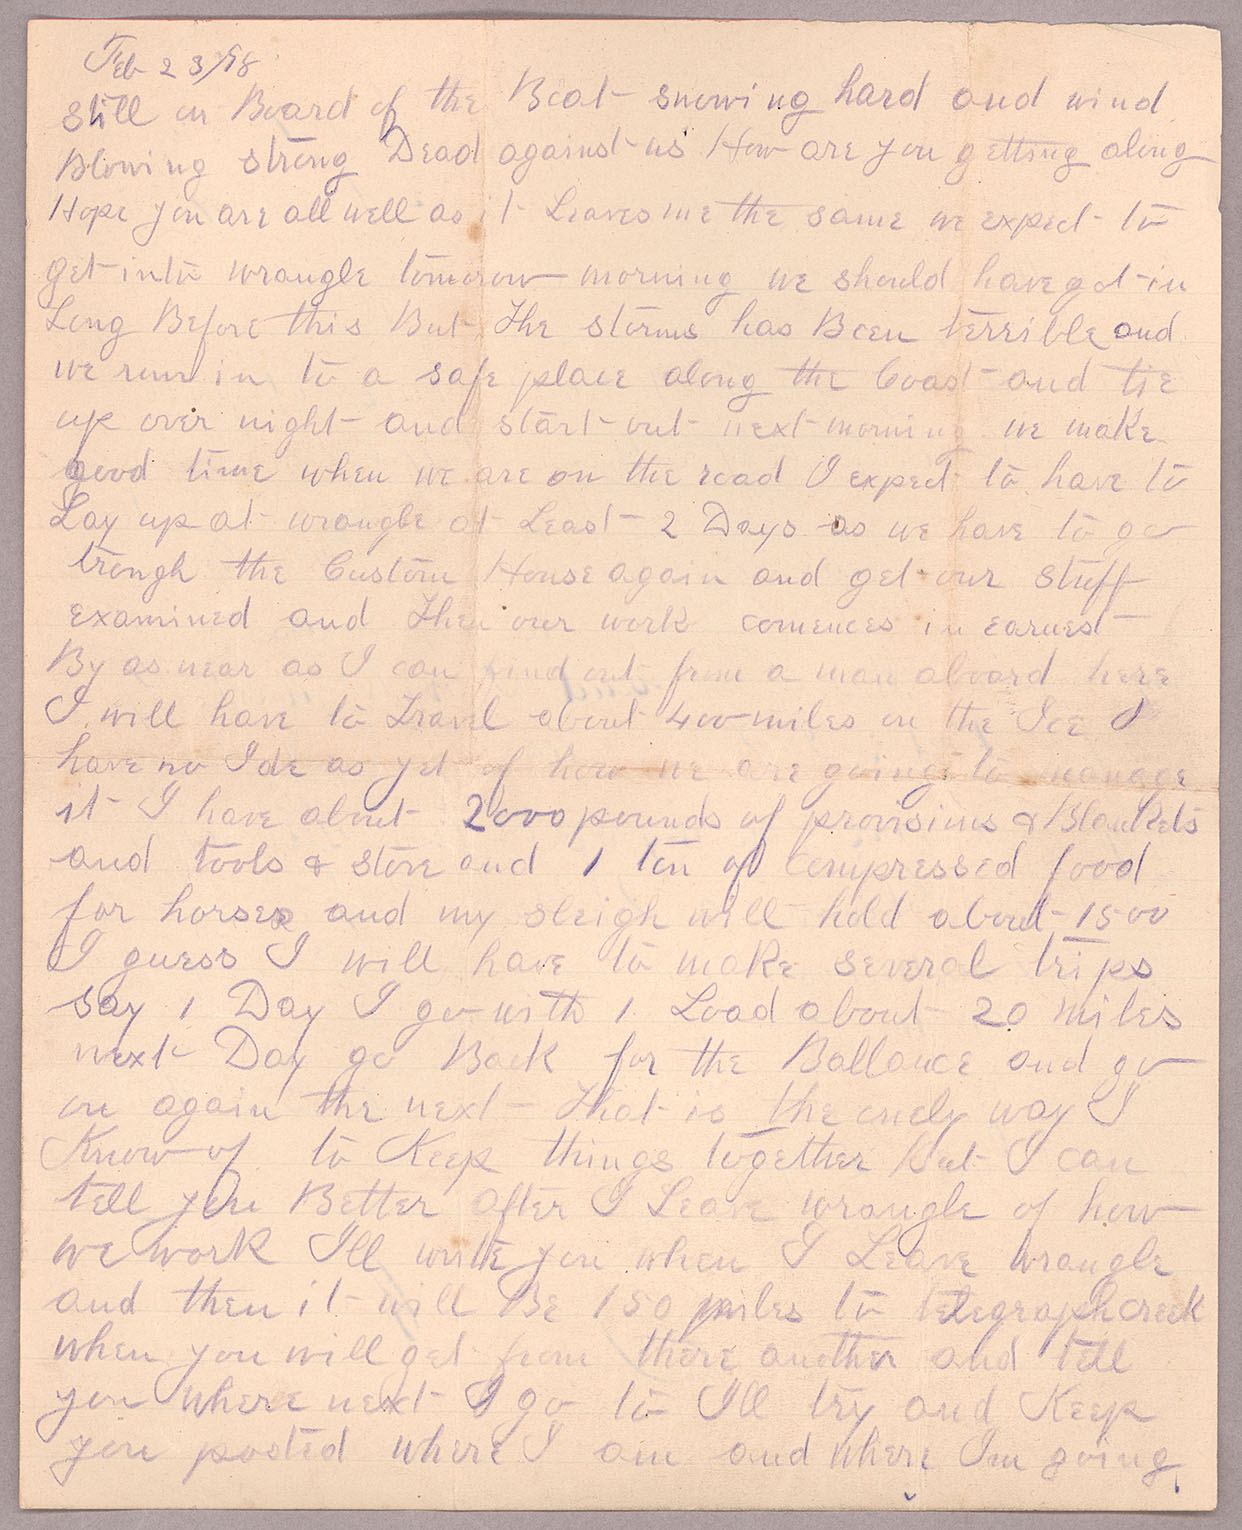 Feb 23/98
still on Board of the Boat snowing hard and wind
Blowing strong Dead against us How are you getting along
Hope you are all well as it Leaves me the same we expect to
get into wrangle tomorow morning we should have got in
Long Before this But The storms has Been terrible and
we run in to a safe place along the Coast and tie
up over night and start out next morning we make
good time when we are on the road I expect to have to
Lay up at wrangle at Least 2 Days as we have to go
trough the Custom House again and get our stuff
examined and then our work comences in earnest
By as near as I can find out from a man aboard here
I will have to Travel about 400 miles on the Ice I
have no Ide as yet of how we are going to manage
it I have about 2000 pounds of provisions & Blankets
and tools & stove and 1 ton of compressed food
for horses and my sleigh will hold about 1500
I guess I will have to make several trips
say 1 Day I go with 1 Load about 20 miles
next Day go Back for the Ballance and go
on again the next That is the onely way I
Know of to Keep things together But I can
tell you Better after I Leave wrangle of how
we work Ill write you when I Leave wrangle
and then it will Be 150 miles to telegraph creek
when you will get from there another and tell
you where next I go to Ill try and Keep
you posted where I am and where Im going